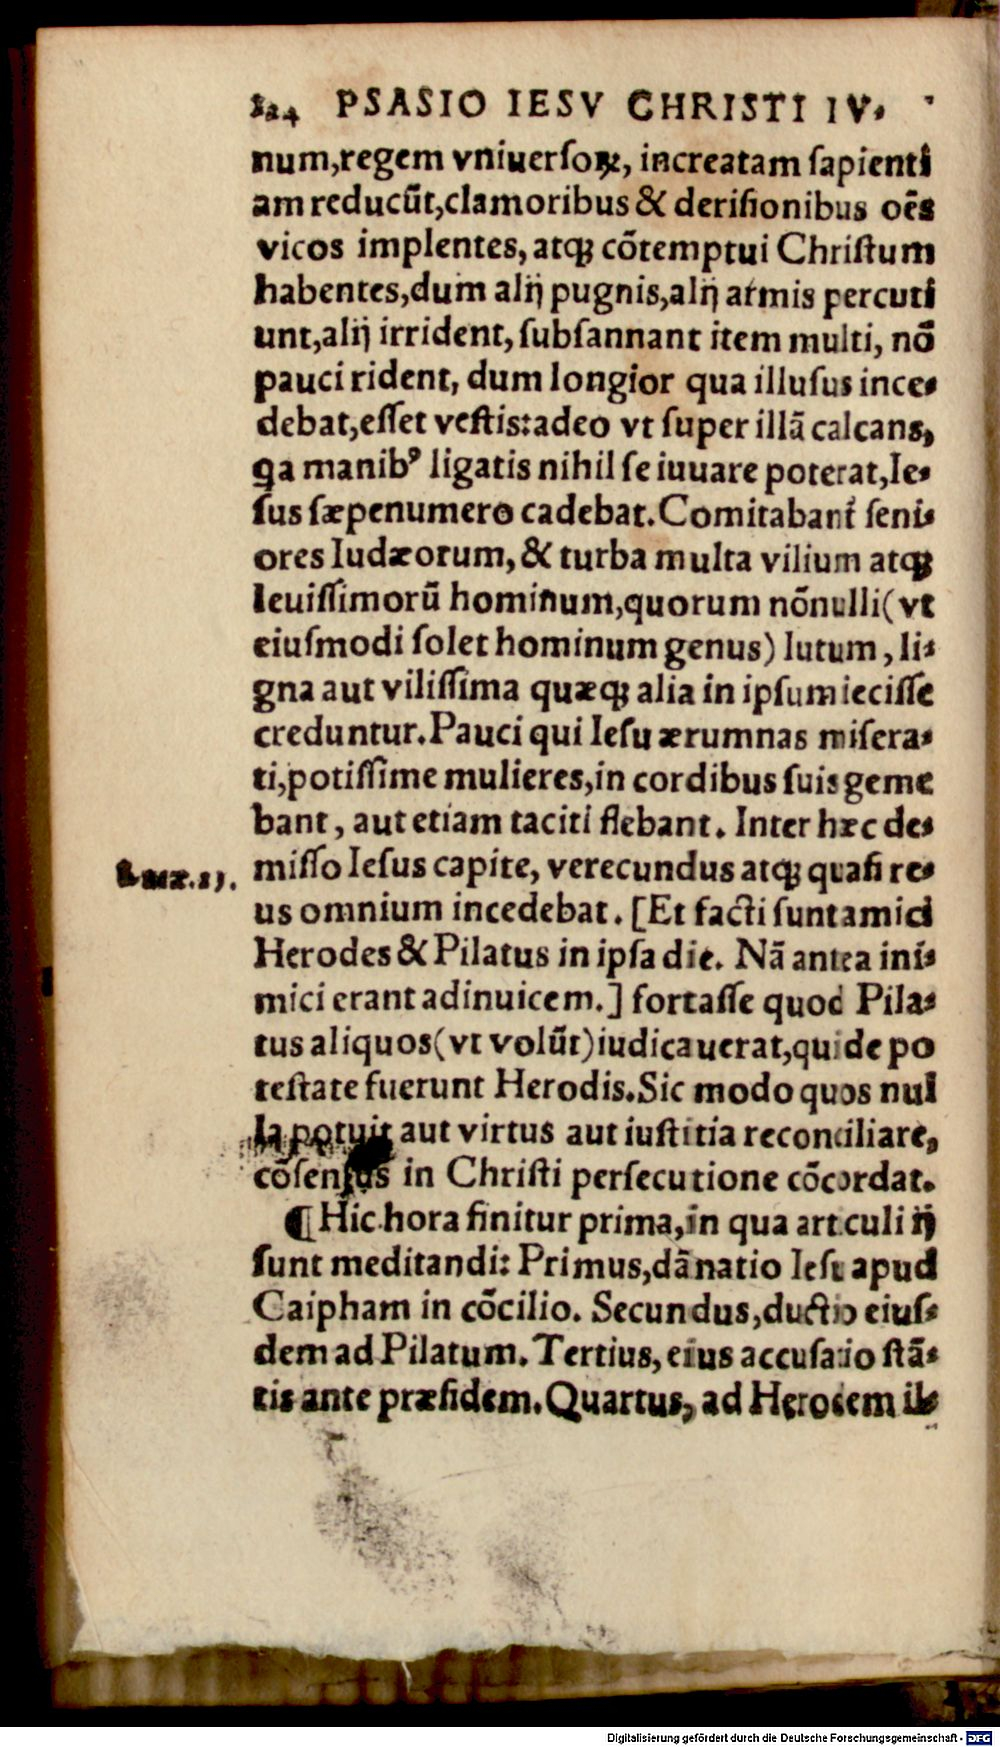 824 PSASIO IESV CHRISTI IV.
num,regem vniuersoꝝ, increatam sapienti
am reducūt,clamoribus & derisionibus oēs
vicos implentes, atqꝫ cōtemptui Christum
habentes,dum alij pugnis,alij armis percuti
unt,alij irrident, subsannant item multi, nō
pauci rident, dum longior qua illusus ince-
debat,esset vestis:adeo vt super illā calcans,
ꝗa manibꝰ ligatis nihil se iuuare poterat,Ie-
sus sæpenumero cadebat.Comitabant̃ seni-
ores Iudæorum, & turba multa vilium atqꝫ
leuissimorū hominum,quorum nōnulli(vt
eiusmodi solet hominum genus) lutum, li-
gna aut vilissima quæqꝫ alia in ipsum iecisse
creduntur.Pauci qui Iesu ærumnas misera-
ti,potissime mulieres,in cordibus suis geme
bant, aut etiam taciti flebant. Inter hæc de-
Lucæ.23.
misso Iesus capite, verecundus atqꝫ quasi re-
us omnium incedebat. [Et facti sunt amici
Herodes & Pilatus in ipsa die. Nā antea ini-
mici erant adinuicem.] fortasse quod Pila-
tus aliquos(vt volūt)iudicauerat,qui de po
testate fuerunt Herodis.Sic modo quos nul
la potuit aut virtus aut iustitia reconciliare,
cōsensus in Christi persecutione cōcordat.
¶Hic hora finitur prima,in qua articuli ij
sunt meditandi: Primus,dānatio Iesu apud
Caipham in cōcilio. Secundus,ductio eius-
dem ad Pilatum. Tertius, eius accusatio stā-
tis ante præsidem.Quartus, ad Herodem il-
Digitalisierung gefördert durch die Deutsche Forschungsgemeinschaft - DFG